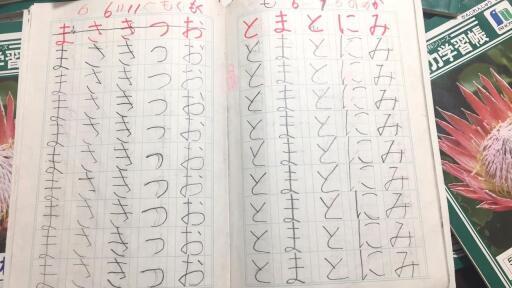 みみみみみみみみみみ
にににににににににに
とととととととととと
まままままままままま
とととととととととと
おおおおおおおおおお
つつつつつつつつつつ
きききききききききき
ささささささささささ
まままままままままま
学習帳